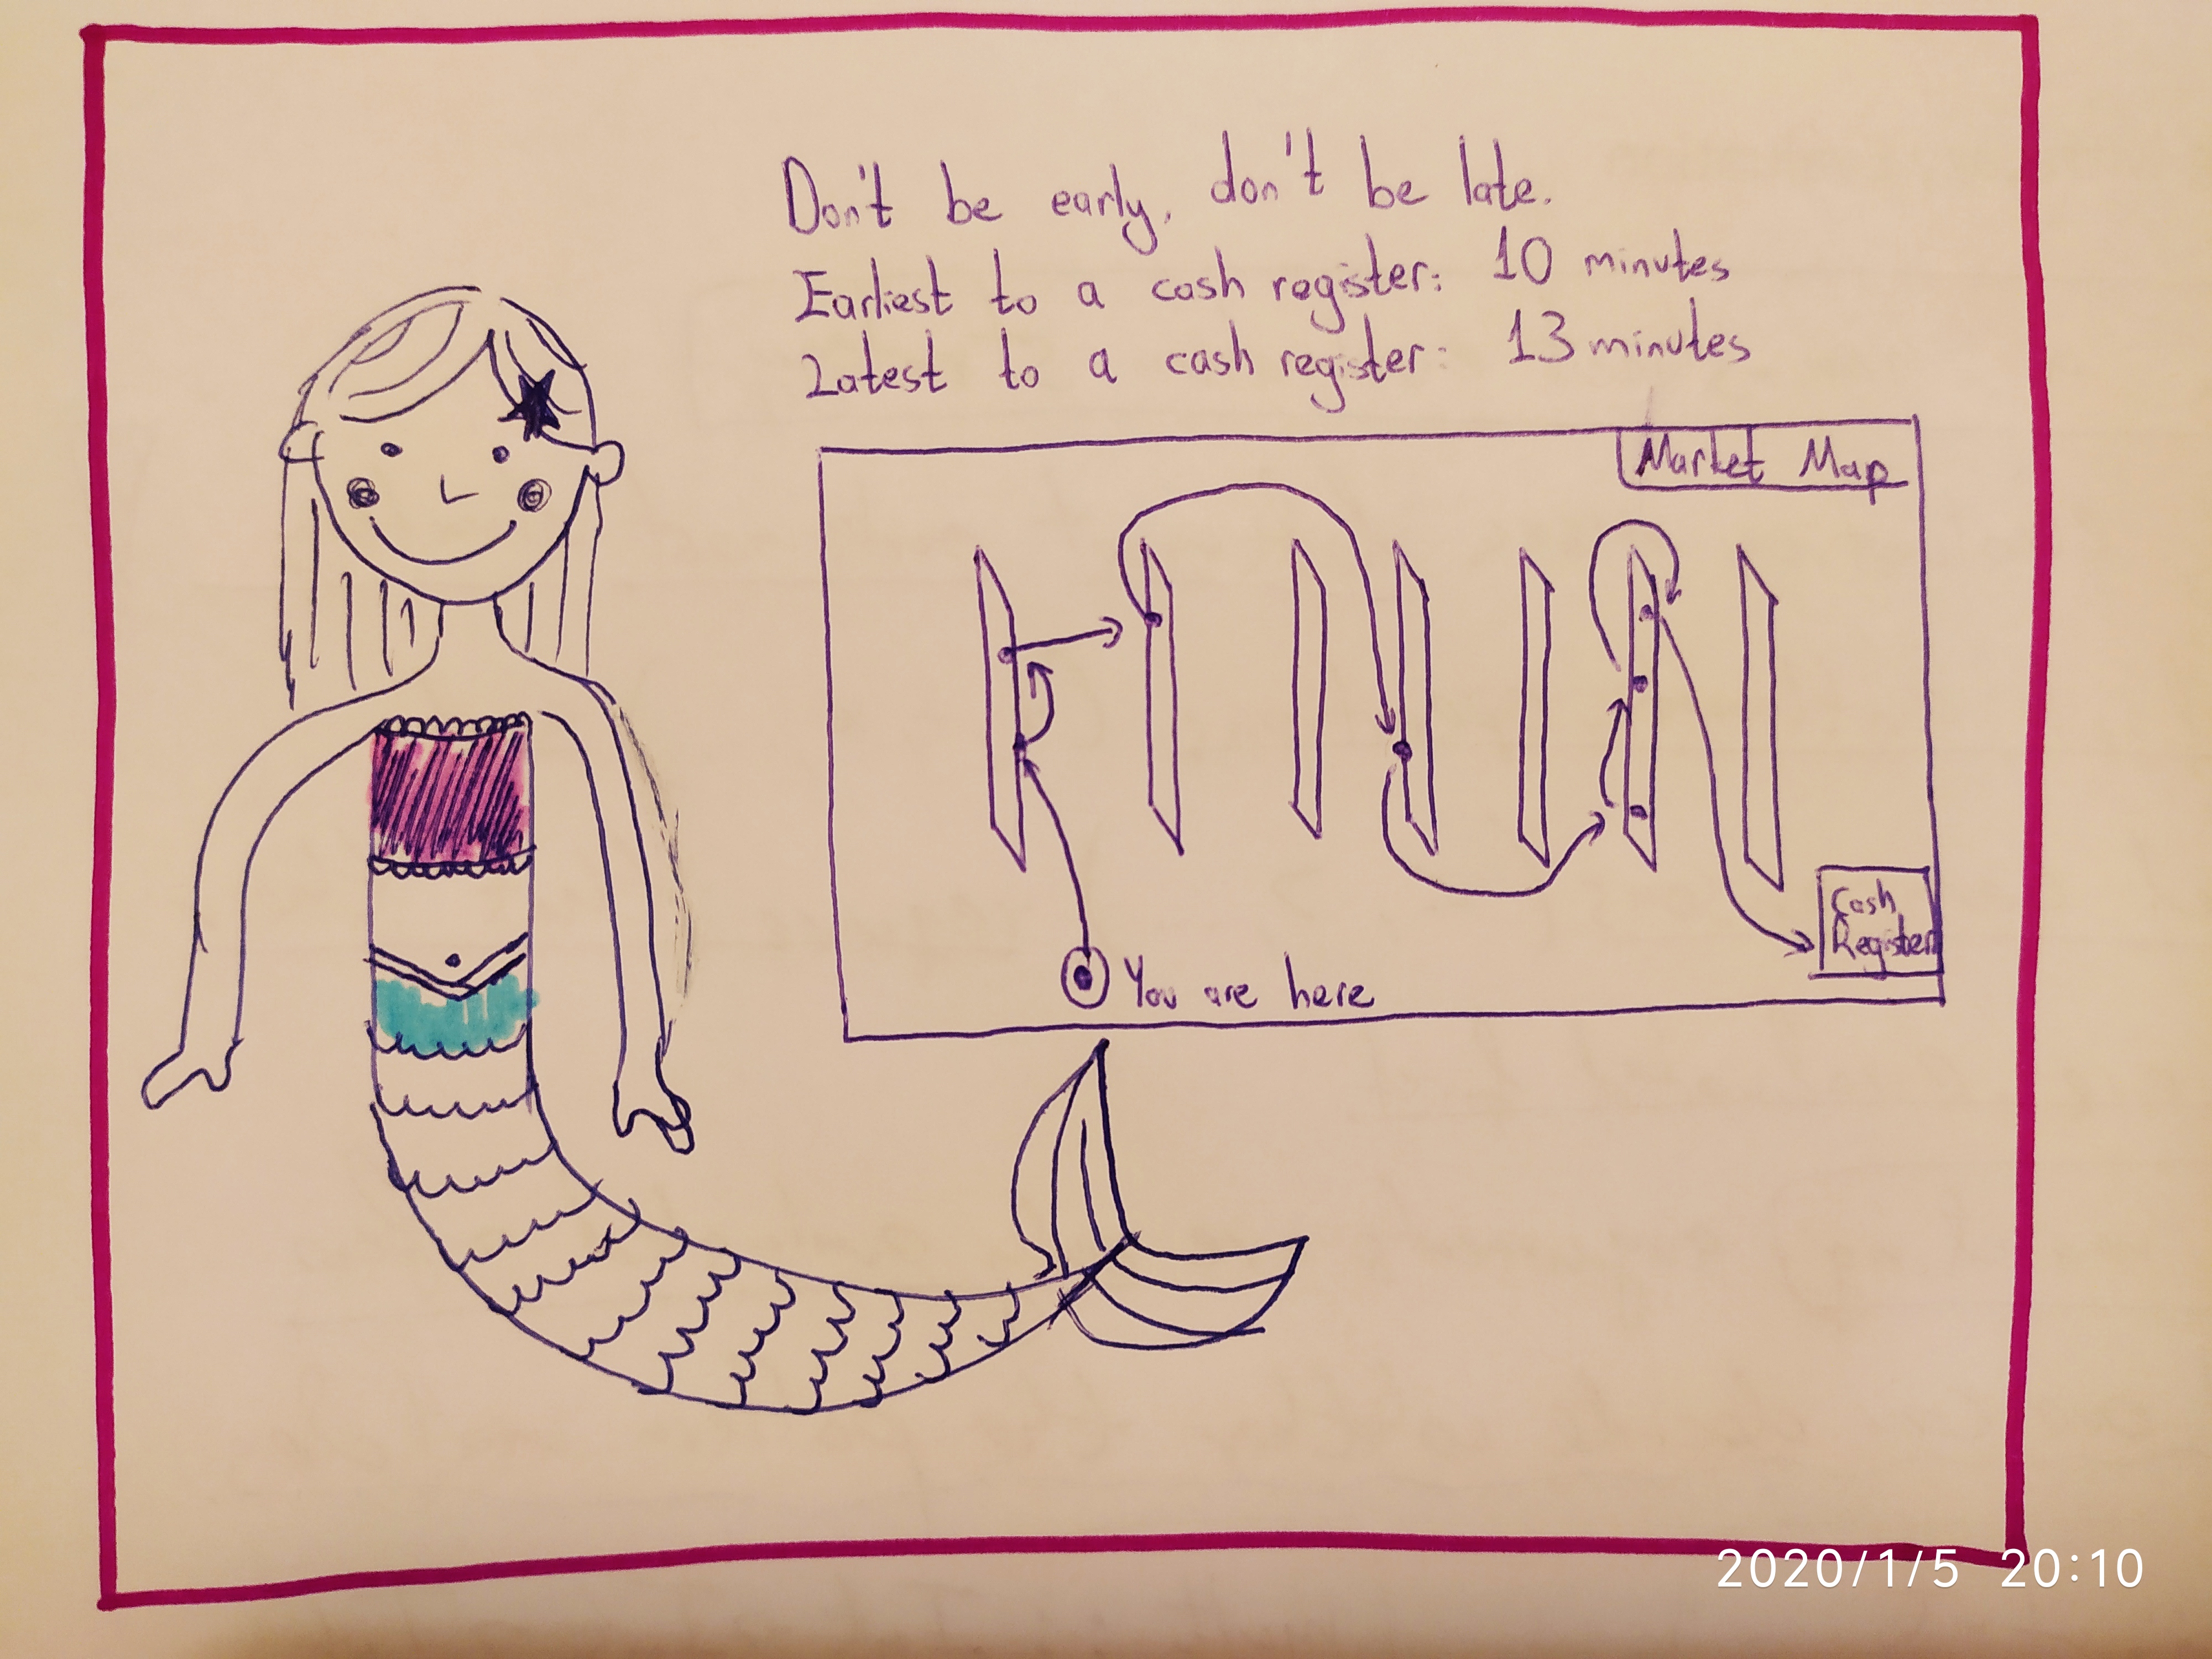 Don't be early, don't be late.
Earliest to a cash register: 10 minutes
Latest to a cash register: 13 minutes
Market Map
You are here
Cash
Register
2020/1/5 20:10